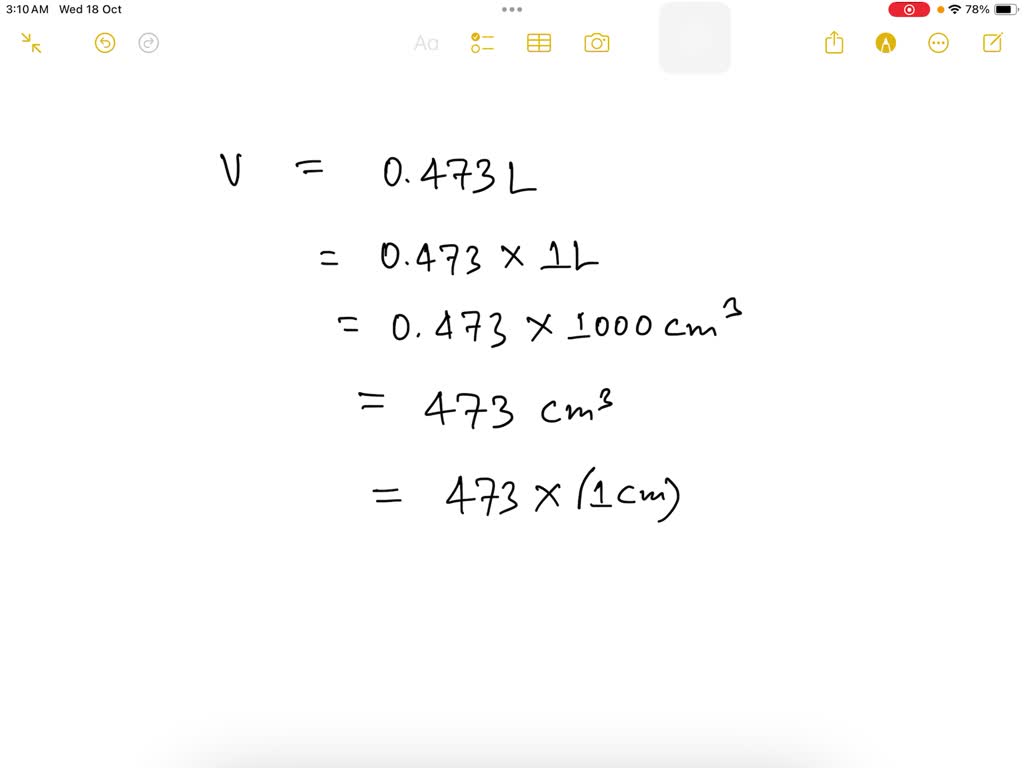 3:10 AM Wed 18 Oct 78%
Aa
V = 0.473 L
= 0.473 × 1L
= 0.473 × 1000 cm³
= 473 cm³
= 473 × (1 cm)